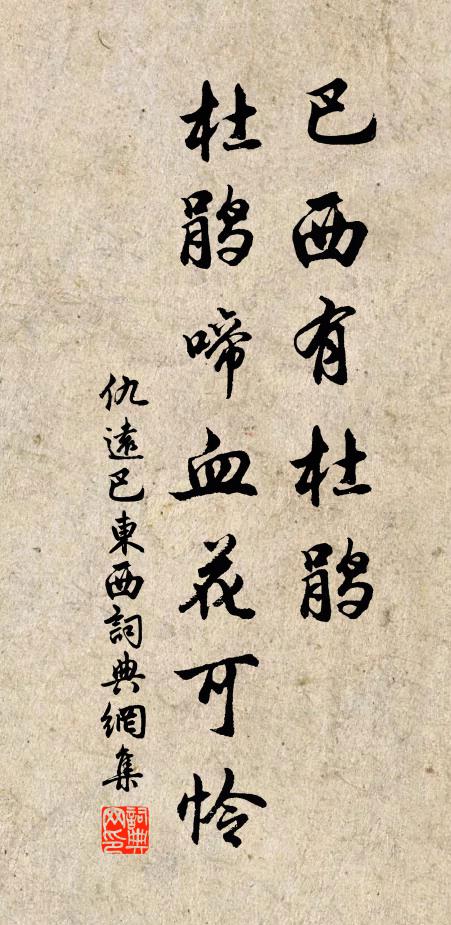 巴西有杜鹃
杜鹃啼血花可怜
仇遠巴東西詞典網集
詞典
网印